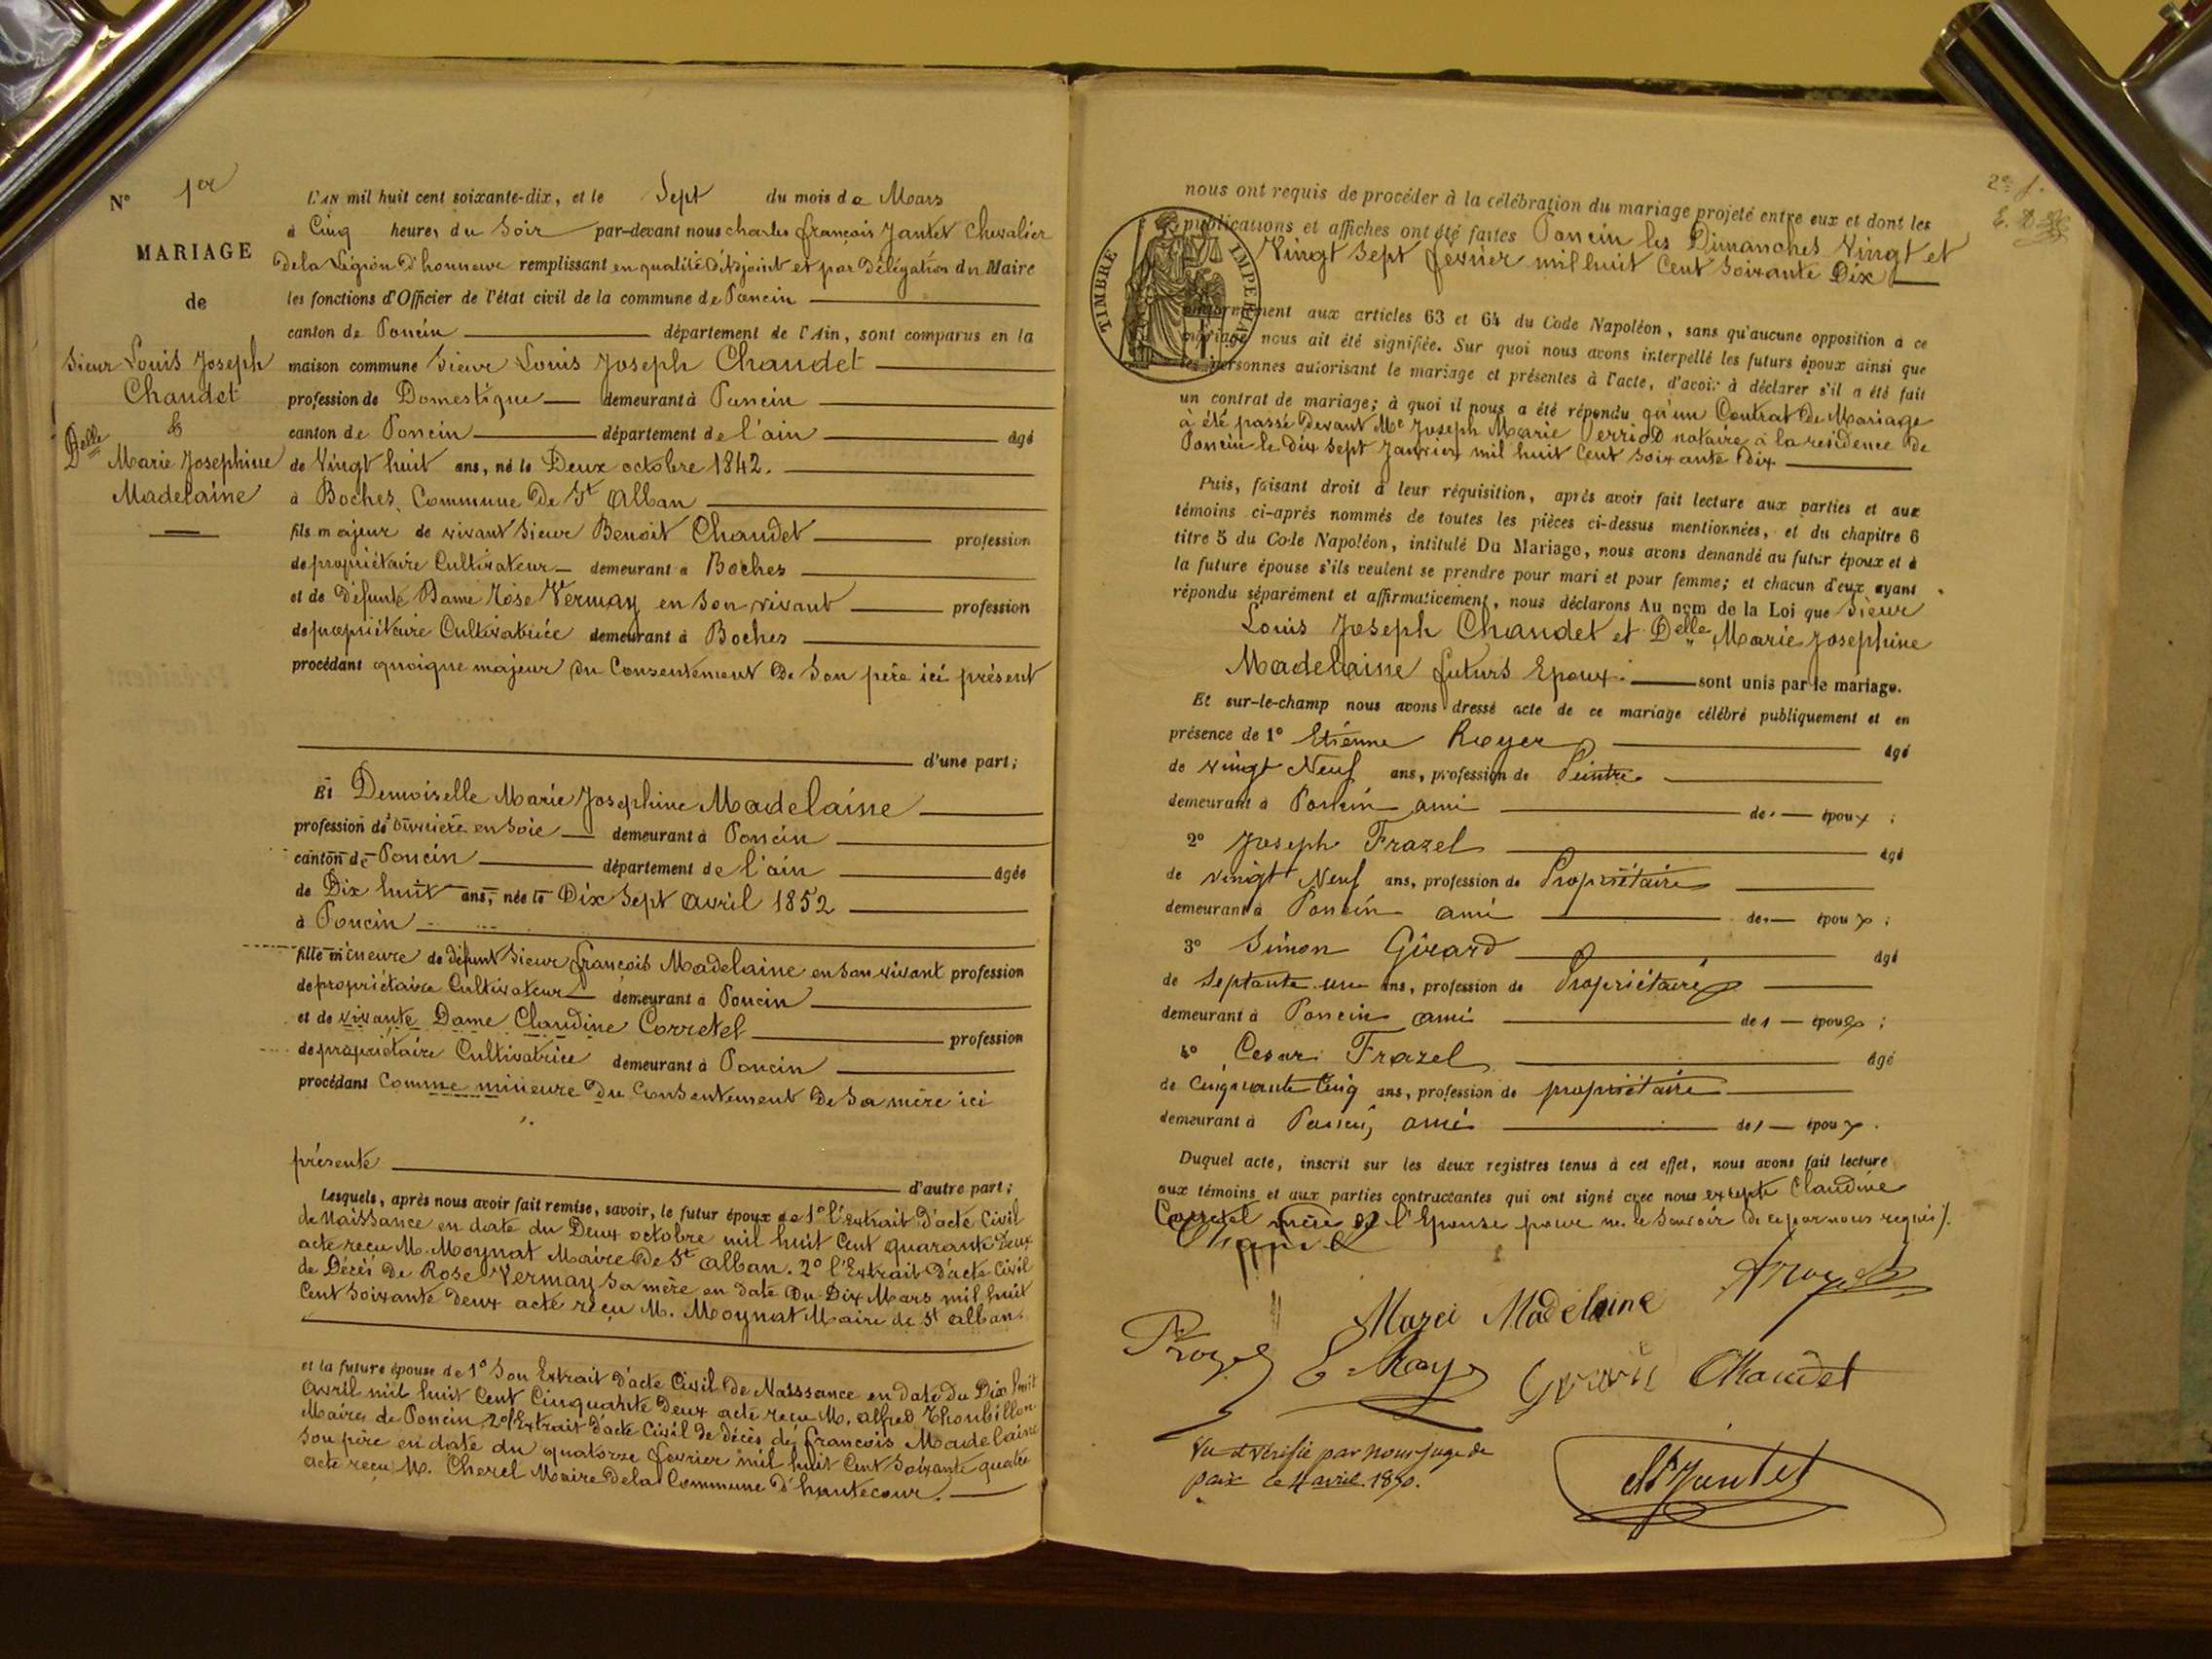 N° 1er
MARIAGE
de
Sieur Louis Joseph
Chaudet
&
Delle Marie Josephine
Madelaine
L'AN mil huit cent soixante-dix, et le Sept du mois de Mars
à Cinq heures du Soir par-devant nous charles françois Jantet Chevalier
De la Légion D'honneur remplissant en qualité D'Adjoint et par Délégation du Maire
les fonctions d'Officier de l'état civil de la commune de Poncin
canton de Poncin département de l'Ain, sont comparus en la
maison commune Sieur Louis Joseph Chaudet
profession de Domestique demeurant à Poncin
canton de Poncin département de l'ain âgé
de Vingt huit ans, né le Deux octobre 1842.
à Boches Commune De St Alban
fils majeur de vivant Sieur Benoit Chaudet profession
de propriétaire Cultivateur demeurant à Boches
et de Défunte Dame Rose Vermay en Son vivant profession
de propriétaire Cultivatrice demeurant à Boches
procédant quoique majeur du Consentement De Son père ici présent
d'une part;
Et Demoiselle Marie Josephine Madelaine
profession de ouvrière en Soie demeurant à Poncin
canton de Poncin département de l'ain âgée
de Dix huit ans, née le Dix Sept Avril 1852
à Poncin
fille mineure de défunt Sieur françois Madelaine en Son vivant profession
de propriétaire Cultivateur demeurant à Poncin
et de vivante Dame Claudine Corretel profession
de propriétaire Cultivatrice demeurant à Poncin
procédant Comme mineure Du Consentement De Sa mère ici
présente
d'autre part;
Lesquels, après nous avoir fait remise, savoir, le futur époux de 1° l'Extrait D'acte Civil
de Naissance en date du Deux octobre mil huit Cent quarante Deux
acte reçu M. Moynat Maire De St Alban. 2° l'Extrait D'acte Civil
de Décès De Rose Vermay Sa mère en date Du Dix Mars mil huit
Cent Soixante Deux acte reçu M. Moynat Maire de St Alban.
et la future épouse de 1° Son Extrait D'acte Civil De Naissance en date Du Dix huit
Avril mil huit Cent Cinquante Deux acte reçu M. Alfred Thoubillon
Maire de Poncin 2° l'Extrait D'acte Civil de Décès de françois Madelaine
Son père en date du quatorze fevrier mil huit Cent Soixante quatre
acte reçu M. Cherel Maire De la Commune D'hautecour.
nous ont requis de procéder à la célébration du mariage projeté entre eux et dont les
publications et affiches ont été faites Poncin les Dimanches Vingt et
Vingt Sept fevrier mil huit Cent Soixante Dix
TIMBRE IMPERIAL
conformément aux articles 63 et 64 du Code Napoléon, sans qu'aucune opposition à ce
mariage nous ait été signifiée. Sur quoi nous avons interpellé les futurs époux ainsi que
les personnes autorisant le mariage et présentes à l'acte, d'avoir à déclarer s'il a été fait
un contrat de mariage; à quoi il nous a été répondu qu'un Contrat De Mariage
à été passé Devant Me Joseph Marie Perriod notaire à la residence De
Poncin le Dix Sept Janvier mil huit Cent Soixante Dix
Puis, faisant droit à leur réquisition, après avoir fait lecture aux parties et aux
témoins ci-après nommés de toutes les pièces ci-dessus mentionnées, et du chapitre 6
titre 5 du Code Napoléon, intitulé Du Mariage, nous avons demandé au futur époux et à
la future épouse s'ils veulent se prendre pour mari et pour femme; et chacun d'eux ayant
répondu séparément et affirmativement, nous déclarons Au nom de la Loi que Sieur
Louis Joseph Chaudet et Delle Marie Josephine
Madelaine futurs Epoux sont unis par le mariage.
Et sur-le-champ nous avons dressé acte de ce mariage célébré publiquement et en
présence de 1° Etienne Royer âgé
de vingt Neuf ans, profession de Peintre
demeurant à Poncin ami des époux ;
2° Joseph Frazel âgé
de vingt Neuf ans, profession de Propriétaire
demeurant à Poncin ami des époux ;
3° Simon Girard âgé
de Septante un ans, profession de Propriétaire
demeurant à Poncin ami des époux ;
4° Cesar Frazel âgé
de Cinquante Cinq ans, profession de propriétaire
demeurant à Poncin ami des époux.
Duquel acte, inscrit sur les deux registres tenus à cet effet, nous avons fait lecture
aux témoins et aux parties contractantes qui ont signé avec nous excepté Claudine
Corretel mère De l'Epouse pour ne le Savoir De ce par nous requis
Marei Madelaine
Chaudet
Vu et vérifié par nous juge de
paix ce 4 avril 1870.
Jantet